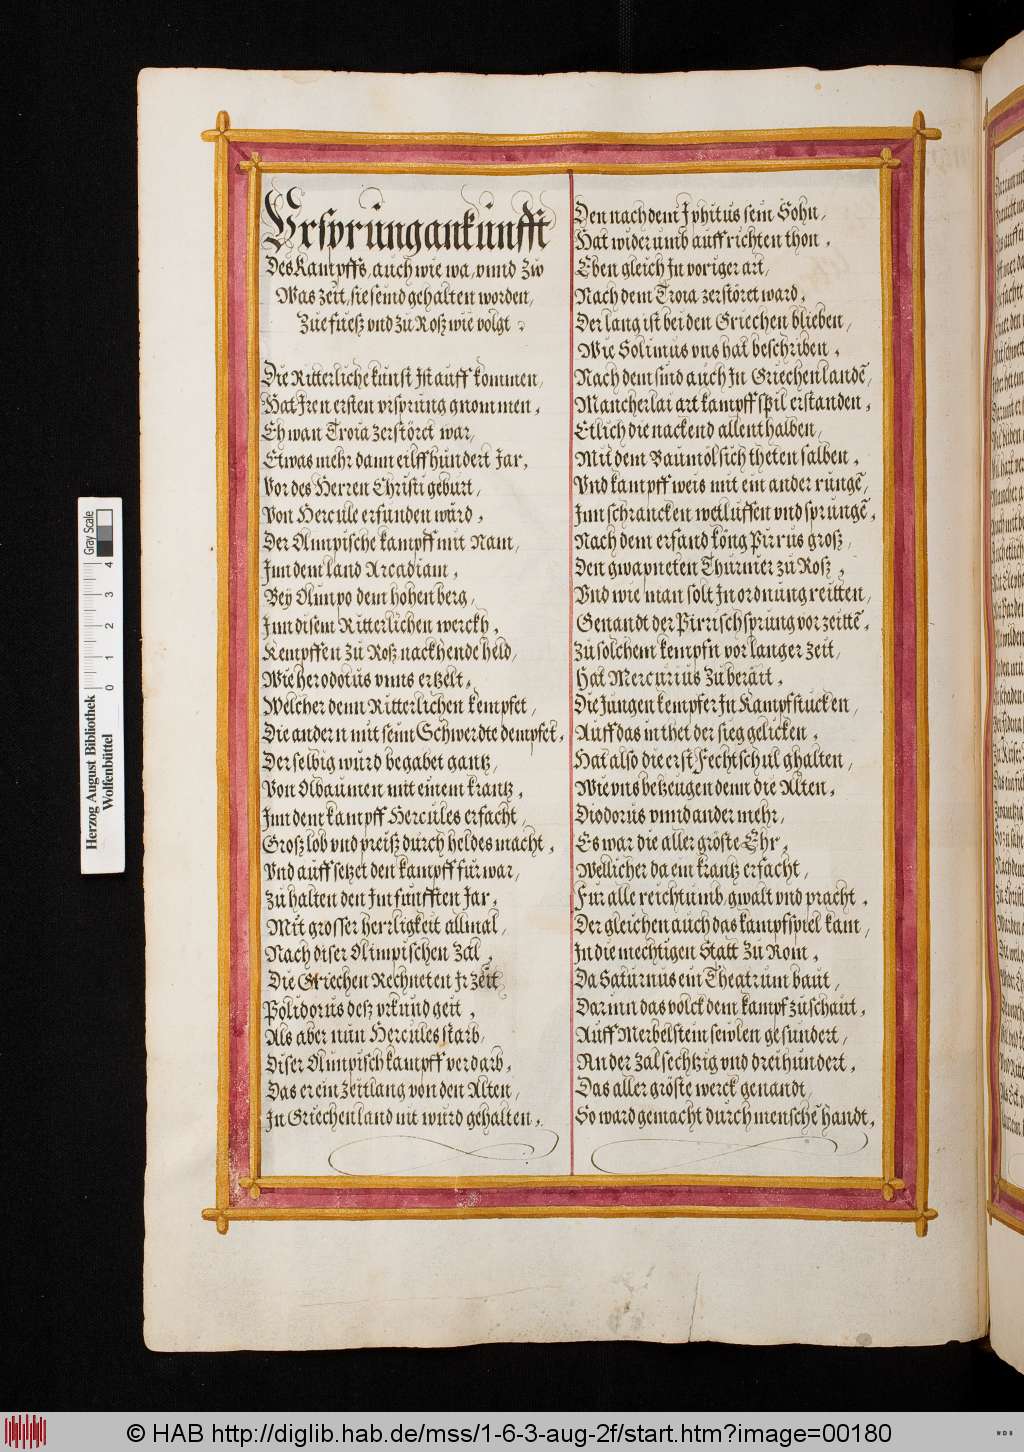 Vrsprüng ankunfft
Des Kampffs, auch wie wa, vnnd zw
Was zeit, sie seind gehalten worden,
Züe füesz vnd zu Rosz wie volgt.
Die Ritterliche künst Ist auff kommen,
Hat Iren ersten vrsprüng gnommen,
Eh wan Troia zerstöret war,
Etwas mehr dann eilffhündert Jar,
Vor des Herren Christi geburt,
Von Hercule erfunden würd,
Der Olimpische kampff mit Nam,
Inn dem land Arcadiam,
Bey Olimpo dem hohen berg,
Inn disem Ritterlichen werckh,
Kempffen zu Rosz nackhende held,
Wie herodotus vnns ertzelt,
Welcher denn Ritterlichen kempfet,
Die andern mit seim Schwerdte dempfet,
Derselbig würd begabet gantz,
Von Olbaumen mit einem krantz,
Inn dem kampff Hercules erfacht,
Grosz lob vnd preisz durch heldes macht,
Vnd auffsetzet den kampff fürwar,
Zu halten den Im fünfften Jar,
Mit grosser herrligkeit allmal,
Nach diser Olimpischen Zal,
Die Griechen Rechneten Ir zeit
Polidorus desz vrkund geit,
Als aber nun Hercules starb,
Diser Olimpisch kampff verdarb,
Das er ein zeitlang von den Alten,
In Griechenland nit würd gehalten,
Den nach dem Iphitus sein Sohn,
Hat widerumb auffrichten thon,
Eben gleich In voriger art,
Nach dem Troia zerstöret ward,
Der lang ist bei den Griechen blieben,
Wie Solinus vns hat beschriben,
Nach dem sind auch In Griechen landē,
Mancherlai art kampffspil erstanden,
Etlich die nackend allenthalben,
Mit dem Baumöl sich theten salben,
Vnd kampffweis mit ein ander rüngē,
Inn schrancken wetluffen vnd sprüngē,
Nach dem erfand köng Pirrus grosz,
Den gwapneten Thurnier zu Rosz,
Vnd wie man solt In ordnung reitten,
Genandt der Pirrisch sprüng vor zeittē,
Zu solchem kempfn vor langer zeit,
Hat Mercürius zuberait,
Die Jüngen kempfer In Kampfstücken,
Auff das in thet der sieg gelicken,
Hat also die erst Fechtschül ghalten,
Wie vns betzeügen denn die Alten,
Diodorüs vnnd ander mehr,
Es war die aller gröste Ehr,
Wellicher da ein krantz erfacht,
Für alle reichtumb, gwalt vnd pracht,
Der gleichen auch das kampfspiel kam,
In die mechtigen Statt zu Rom,
Da Saturnus ein Theatrum baut,
Darinn das volck dem kampf zuschaut,
Auff Merbelstein sewlen gefundert,
An der zal sechtzig vnd dreihündert,
Das aller gröste werck genandt,
So ward gemacht dürch menschē handt,
Herzog August Bibliothek
Wolfenbüttel
0 1 2 3 4
Gray Scale
© HAB http://diglib.hab.de/mss/1-6-3-aug-2f/start.htm?image=00180
WDB